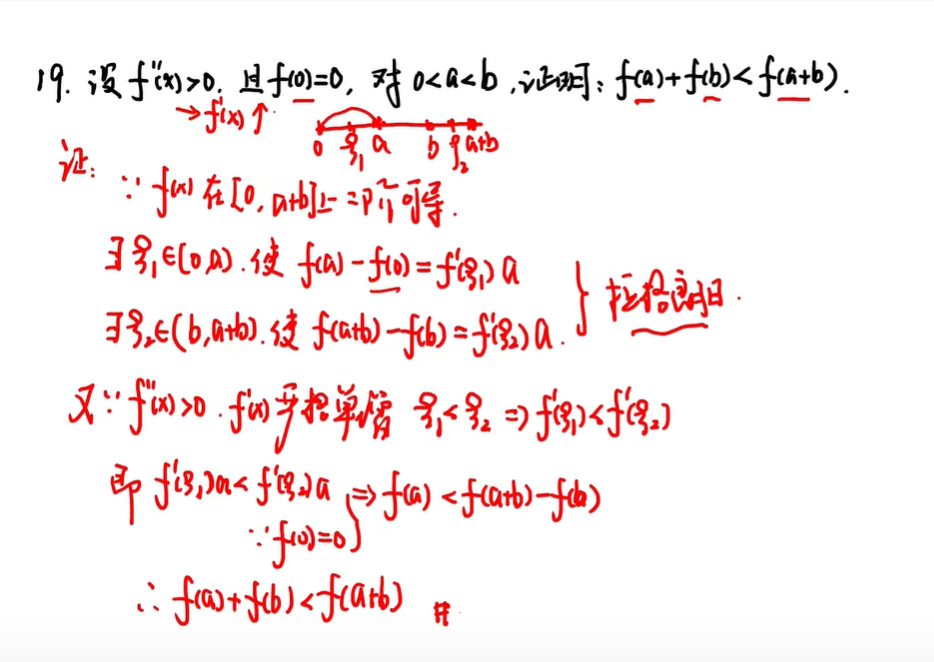 19. 设 f''(x)>0, 且 f(0)=0, 对 0<a<b, 证明: f(a)+f(b)<f(a+b).
→f'(x)↑
0 ξ₁ a b ξ₂ a+b
证:
∵ f(x) 在[0, a+b]上二阶可导.
∃ξ₁∈(0,a). 使 f(a)-f(0)=f'(ξ₁)a
∃ξ₂∈(b,a+b). 使 f(a+b)-f(b)=f'(ξ₂)a. } 拉格朗日.
又∵ f''(x)>0. f'(x)严格单增 ξ₁<ξ₂ ⇒ f'(ξ₁)<f'(ξ₂)
即 f'(ξ₁)a<f'(ξ₂)a } ⇒ f(a)<f(a+b)-f(b)
∵ f(0)=0
∴ f(a)+f(b)<f(a+b) #